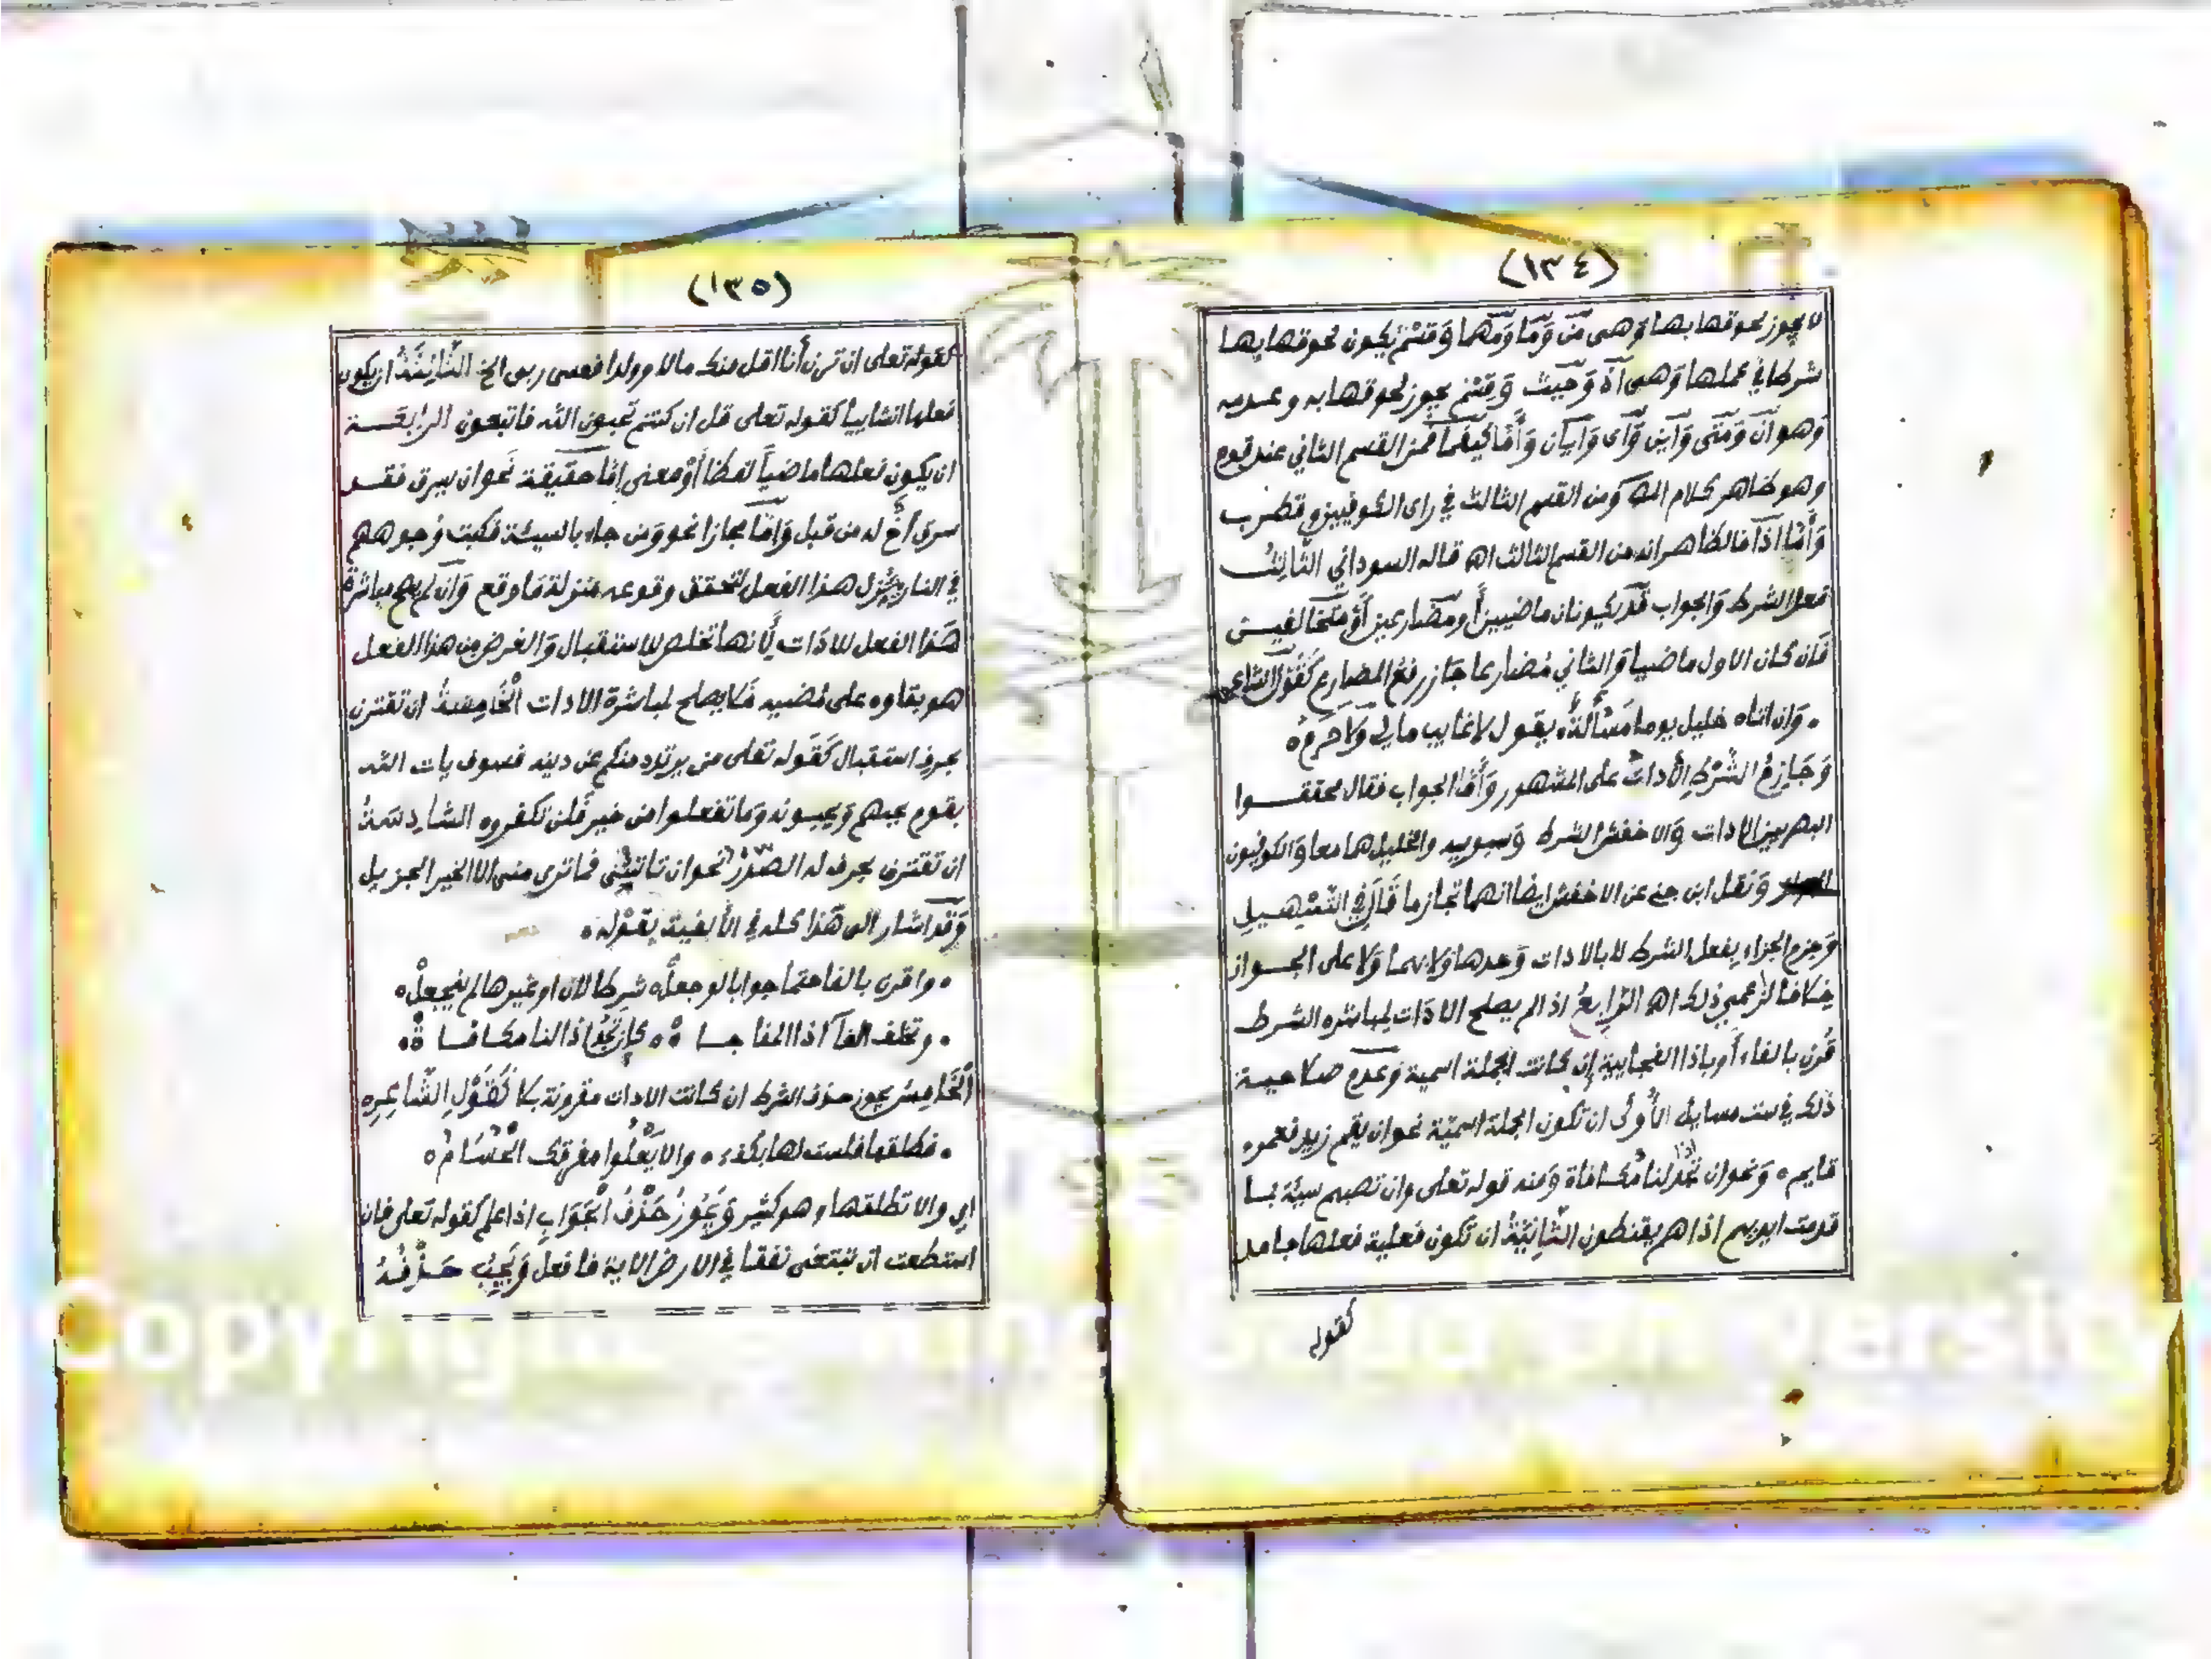 (١٣٤)
لا يجوز لحوقها بها وهى من وَمَا وَمَهما وَقسْم يكون لحوقها بها
شرطا في عملها وَهى اذ وَحيث وَقسْم يجوز لحوقها به وعدمه
وَهو ان وَمتى وَاين وَاى وَايان وَأما كيفما فمن القسم الثاني عند قوم
وهو ظاهر كلام المص ومن القسم الثالث في راى الكوفيين وقطرب
وَأمّا اذا فالظاهر انه من القسم الثالث اه قاله السوداني الثالثُ
فعلا الشرط وَالجواب قد يكونان ماضيين أو مضارعين أو متخالفين
فان كان الاول ماضيا وَالثاني مُضارعا جاز رفع المضارع كقول الشاعر
وَان اتاه خليل يوما مَسْألةٌ ه يقول لا غايب مالي وَلا حَرِمُ ه
وَجَازِمُ الشَّرْطِ الأداتُ على المشهور وَأما الجواب فقال محققوا
البصريين الادات وَالاخفش الشرط وَسيبويه والخليل هما معا وَالكوفيون
الجوار وَنقل ابن جني عن الاخفش ايضا انهما تجازما قَالَ في التسْهيل
وَجزم الجزاء بفعل الشرط لا بالادات وَحدها وَلا بهما وَلا على الجوار
خِلافا لزاعمي ذلك اه الرَّابعُ اذا لم يصلح الادَات لمباشره الشرط
قُرن بالفاء أو باذا الفجايية إن كانت الجملة اسمية وَعدم صلاحية
ذلك في ست مسايل الأُولى ان تكون الجملة اسمية نحو ان يقم زيد فعمرو
قايم ه وَنحو ان تجد اذا لنا مُكافاة وَمنه قوله تعلى وان تصبهم سيئة بما
قدمت ايديهم اذا هم يقنطون الثَّانِيَّةُ ان تكون فعلية فعلها جامد
كقوله
(١٣٥)
كقوله تعلى ان ترن أنا اقل منك مالا وولدا فعسى ربى الخ الثَّالِثَةُ ان يكون
فعلها انشاييا كقوله تعلى قل ان كنتم تحبون الله فاتبعون الرابعَة
ان يكون فعلها ماضياً لفظا أوْ معنى إمّا حقيقة نحو ان يسرق فقد
سرق أخ له من قبل وَامّا مجازا نحو وَمن جاء بالسيئة فكبت وُجوههم
في النار ينزل هذا الفعل لتحقق وقوعه منزلة مَا وقع وَان لم يصح مباشرةُ
هَذا الفعل للادَات لأنها تخلص للاستقبال وَالغرض من هذا الفعل
هو بقاوه على مُضيه فلا يصلح لمباشرة الادات الْخَامِسَةُ ان تقترن
بحرف استقبال كقَوله تعلى من يرتدد منكم عن دينه فسوف يات الله
بقوم يحبهم وَيحبونه وَما تفعلوا من خير فَلن تكفروه السَّادِسَةُ
ان تقترن بحرف له الصَّدْرُ نحو ان تاتينى فما ترى منى الا الخير الجزيل
وَقد اشار الى هَذا كله في الألفية بِقَوْلِه ه
ه واقرن بالفا حتما جوابا لو جعلْ ه شرطا لان او غيرها لم ينجعلْ ه
ه وتخلف الفاَ اذا المفاجا ةْ ه كإن تجُد اذا لنا مكافا ةْ ه
الْخَامِسُ يجوز حذف الشرط ان كانت الادات مقرونة بلا كَقَوْلِ الشَّاعِرِ ه
ه فطلقها فلست لها بكفء ه والا يَعْلُوا مفرقك الْحُسَامُ ه
اي والا تطلقها وهو كثير وَيَجُوزُ حَذْفُ الْجَوَابِ اذا علم كقوله تعلى فان
استطعت ان تبتغى نفقا في الارض الاية فافعل وَيَجِبُ حَذْفُهُ